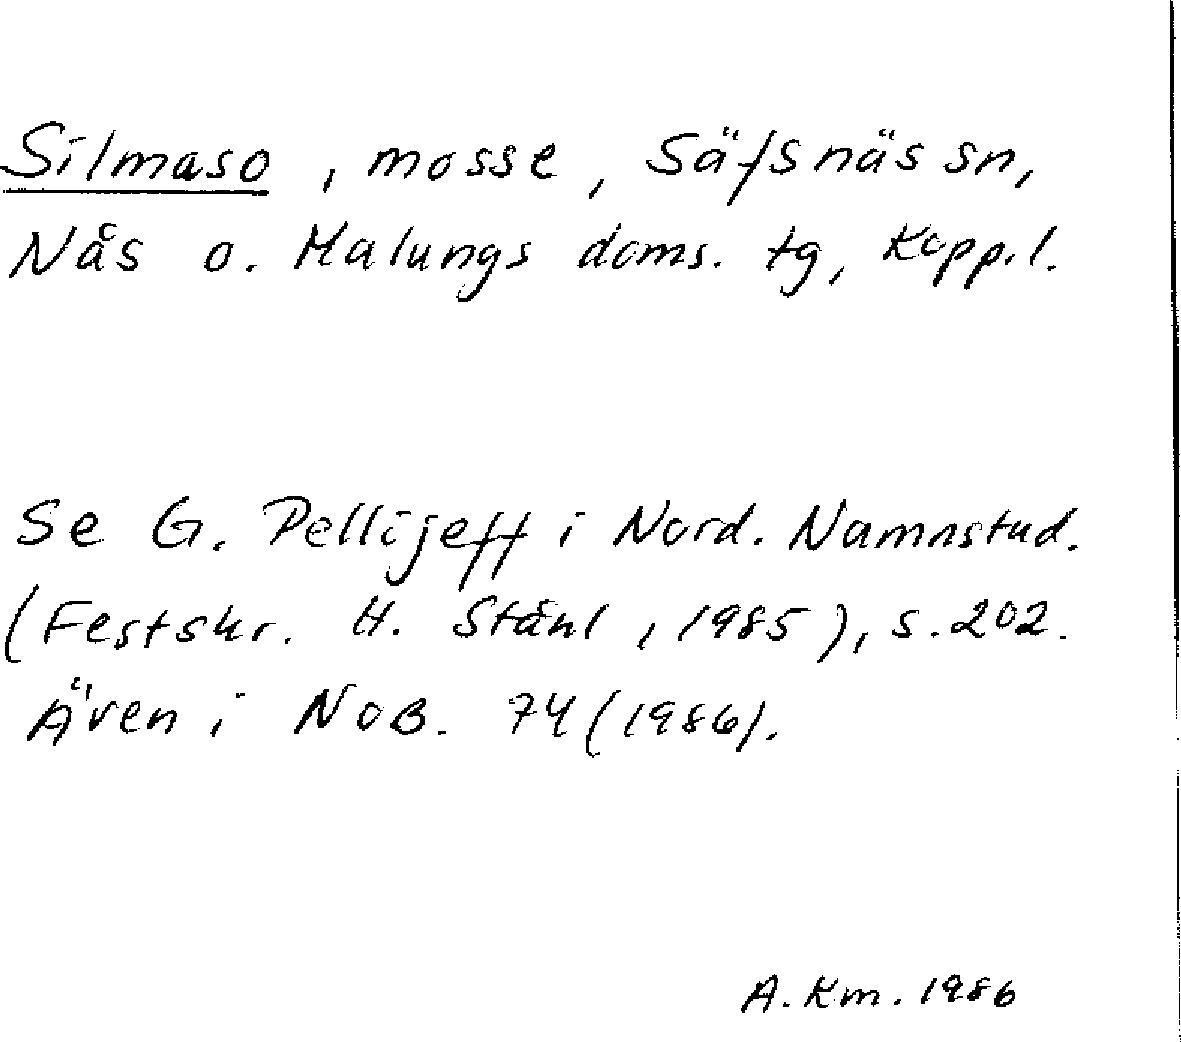 Silmaso, mosse, Säfsnäs sn,
Nås o. Malungs doms. tg, Kopp.l.
Se G. Pellijeff i Nord. Namnstud.
(Festskr. H. Ståhl, 1985), s. 202.
Även i NoB. 74 (1986).
A. Km. 1986